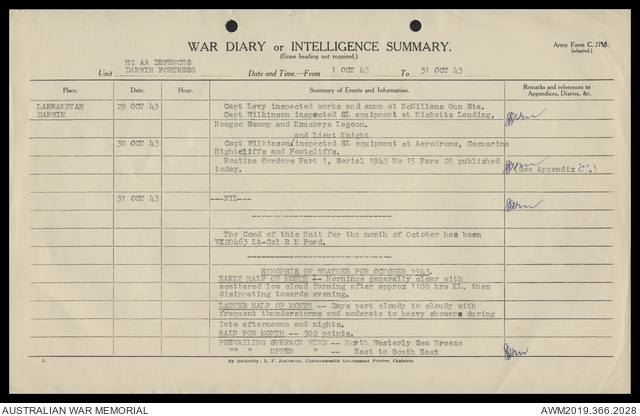 WAR DIARY or INTELLIGENCE SUMMARY.
(Erase heading not required.)
Army Form C. 2118.
(adapted.)
Unit HQ AA DEFENCES
DARWIN FORTRESS
Date and Time.—From 1 OCT 43 To 31 OCT 43
Place. Date. Hour. Summary of Events and Information. Remarks and references to
Appendices, Diaries, &c.
LARRAKEYAH
DARWIN
29 OCT 43
Capt Levy inspected works and ammn at McMillans Gun Sta.
Capt Wilkinson inspected SL equipment at Nicketts Landing,
Noogoo Swamp and Knuckeys Lagoon.
and Lieut Knight
30 OCT 43
Capt Wilkinson inspected SL equipment at Aerodrome, Casuarina
Nightcliffs and Footcliffs.
Routine Orrders Part 1, Serial 1943 No 15 Para 28 published
today.
(See Appendix "C".)
31 OCT 43
---NIL---
The Comd of this Unit for the month of October has been
VX20463 Lt-Col R M Ford.
SYNOPSIS OF WEATHER FOR OCTOBER 1943.
EARLY HALF OF MONTH -- Mornings generally clear with
scattered low cloud forming after approx 1100 hrs KL, then
disipating towards evening.
LATTER HALF OF MONTH -- Days part cloudy to cloudy with
frequent thunderstorms and moderate to heavy showers during
late afternoons and nights.
RAIN FOR MONTH -- 302 points.
PREVAILING SURFACE WIND -- North Westerly Sea Breeze
"" " UPPER " -- East to South East
By Authority: L. F. Johnston, Commonwealth Government Printer, Canberra.
AUSTRALIAN WAR MEMORIAL
AWM2019.366.2028